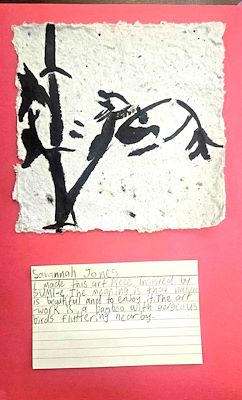 Savannah Jones
I made this art piece inspired by
SUMI-e. The meaning is that nature
is beautiful and to enjoy it. The art
-work is a bamboo with gorgeous
birds fluttering nearby.